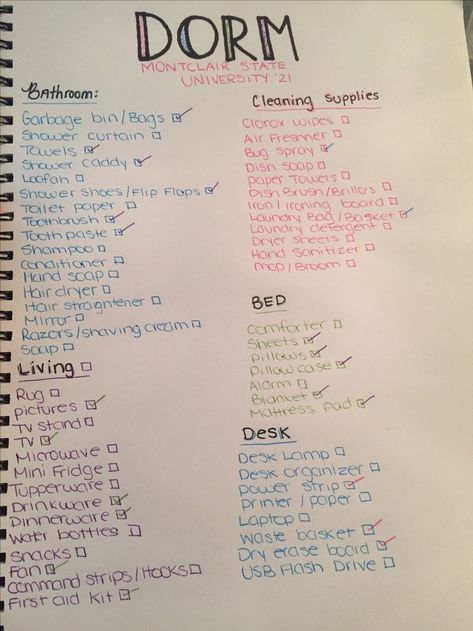 DORM
MONTCLAIR STATE
UNIVERSITY '21
Bathroom:
Garbage bin/Bags ☑
Shower curtain ☐
Towels ☑
Shower caddy ☑
Loofah ☐
Shower shoes/Flip Flops ☑
Toilet paper ☐
Toothbrush ☑
Tooth paste ☑
Shampoo ☐
Conditioner ☐
Hand soap ☐
Hair dryer ☐
Hair straightener ☐
Mirror ☐
Razors/shaving cream ☐
Soap ☐
Living ☐
Rug ☐
pictures ☑
TV stand ☐
TV ☑
Microwave ☐
Mini Fridge ☐
Tupperware ☐
Drinkware ☑
Dinnerware ☑
water bottles ☐
snacks ☐
Fan ☑
command strips/Hooks ☐
First aid kit ☑
Cleaning Supplies
Clorox wipes ☐
Air Freshner ☐
Bug spray ☑
Dish soap ☐
paper Towels ☐
Dish Brush/Brillo's ☐
Iron/ironing board ☐
Laundry Bag/Basket ☑
Laundry detergent ☐
Dryer sheets ☐
Hand Sanitizer ☐
Mop/Broom ☐
BED
Comforter ☐
Sheets ☑
pillows ☑
pillow case ☑
Alarm ☐
Blanket ☑
Mattress pad ☑
Desk
Desk Lamp ☐
Desk organizer ☐
power strip ☑
printer/paper ☐
Laptop ☐
Waste basket ☑
Dry erase board ☑
USB Flash Drive ☐